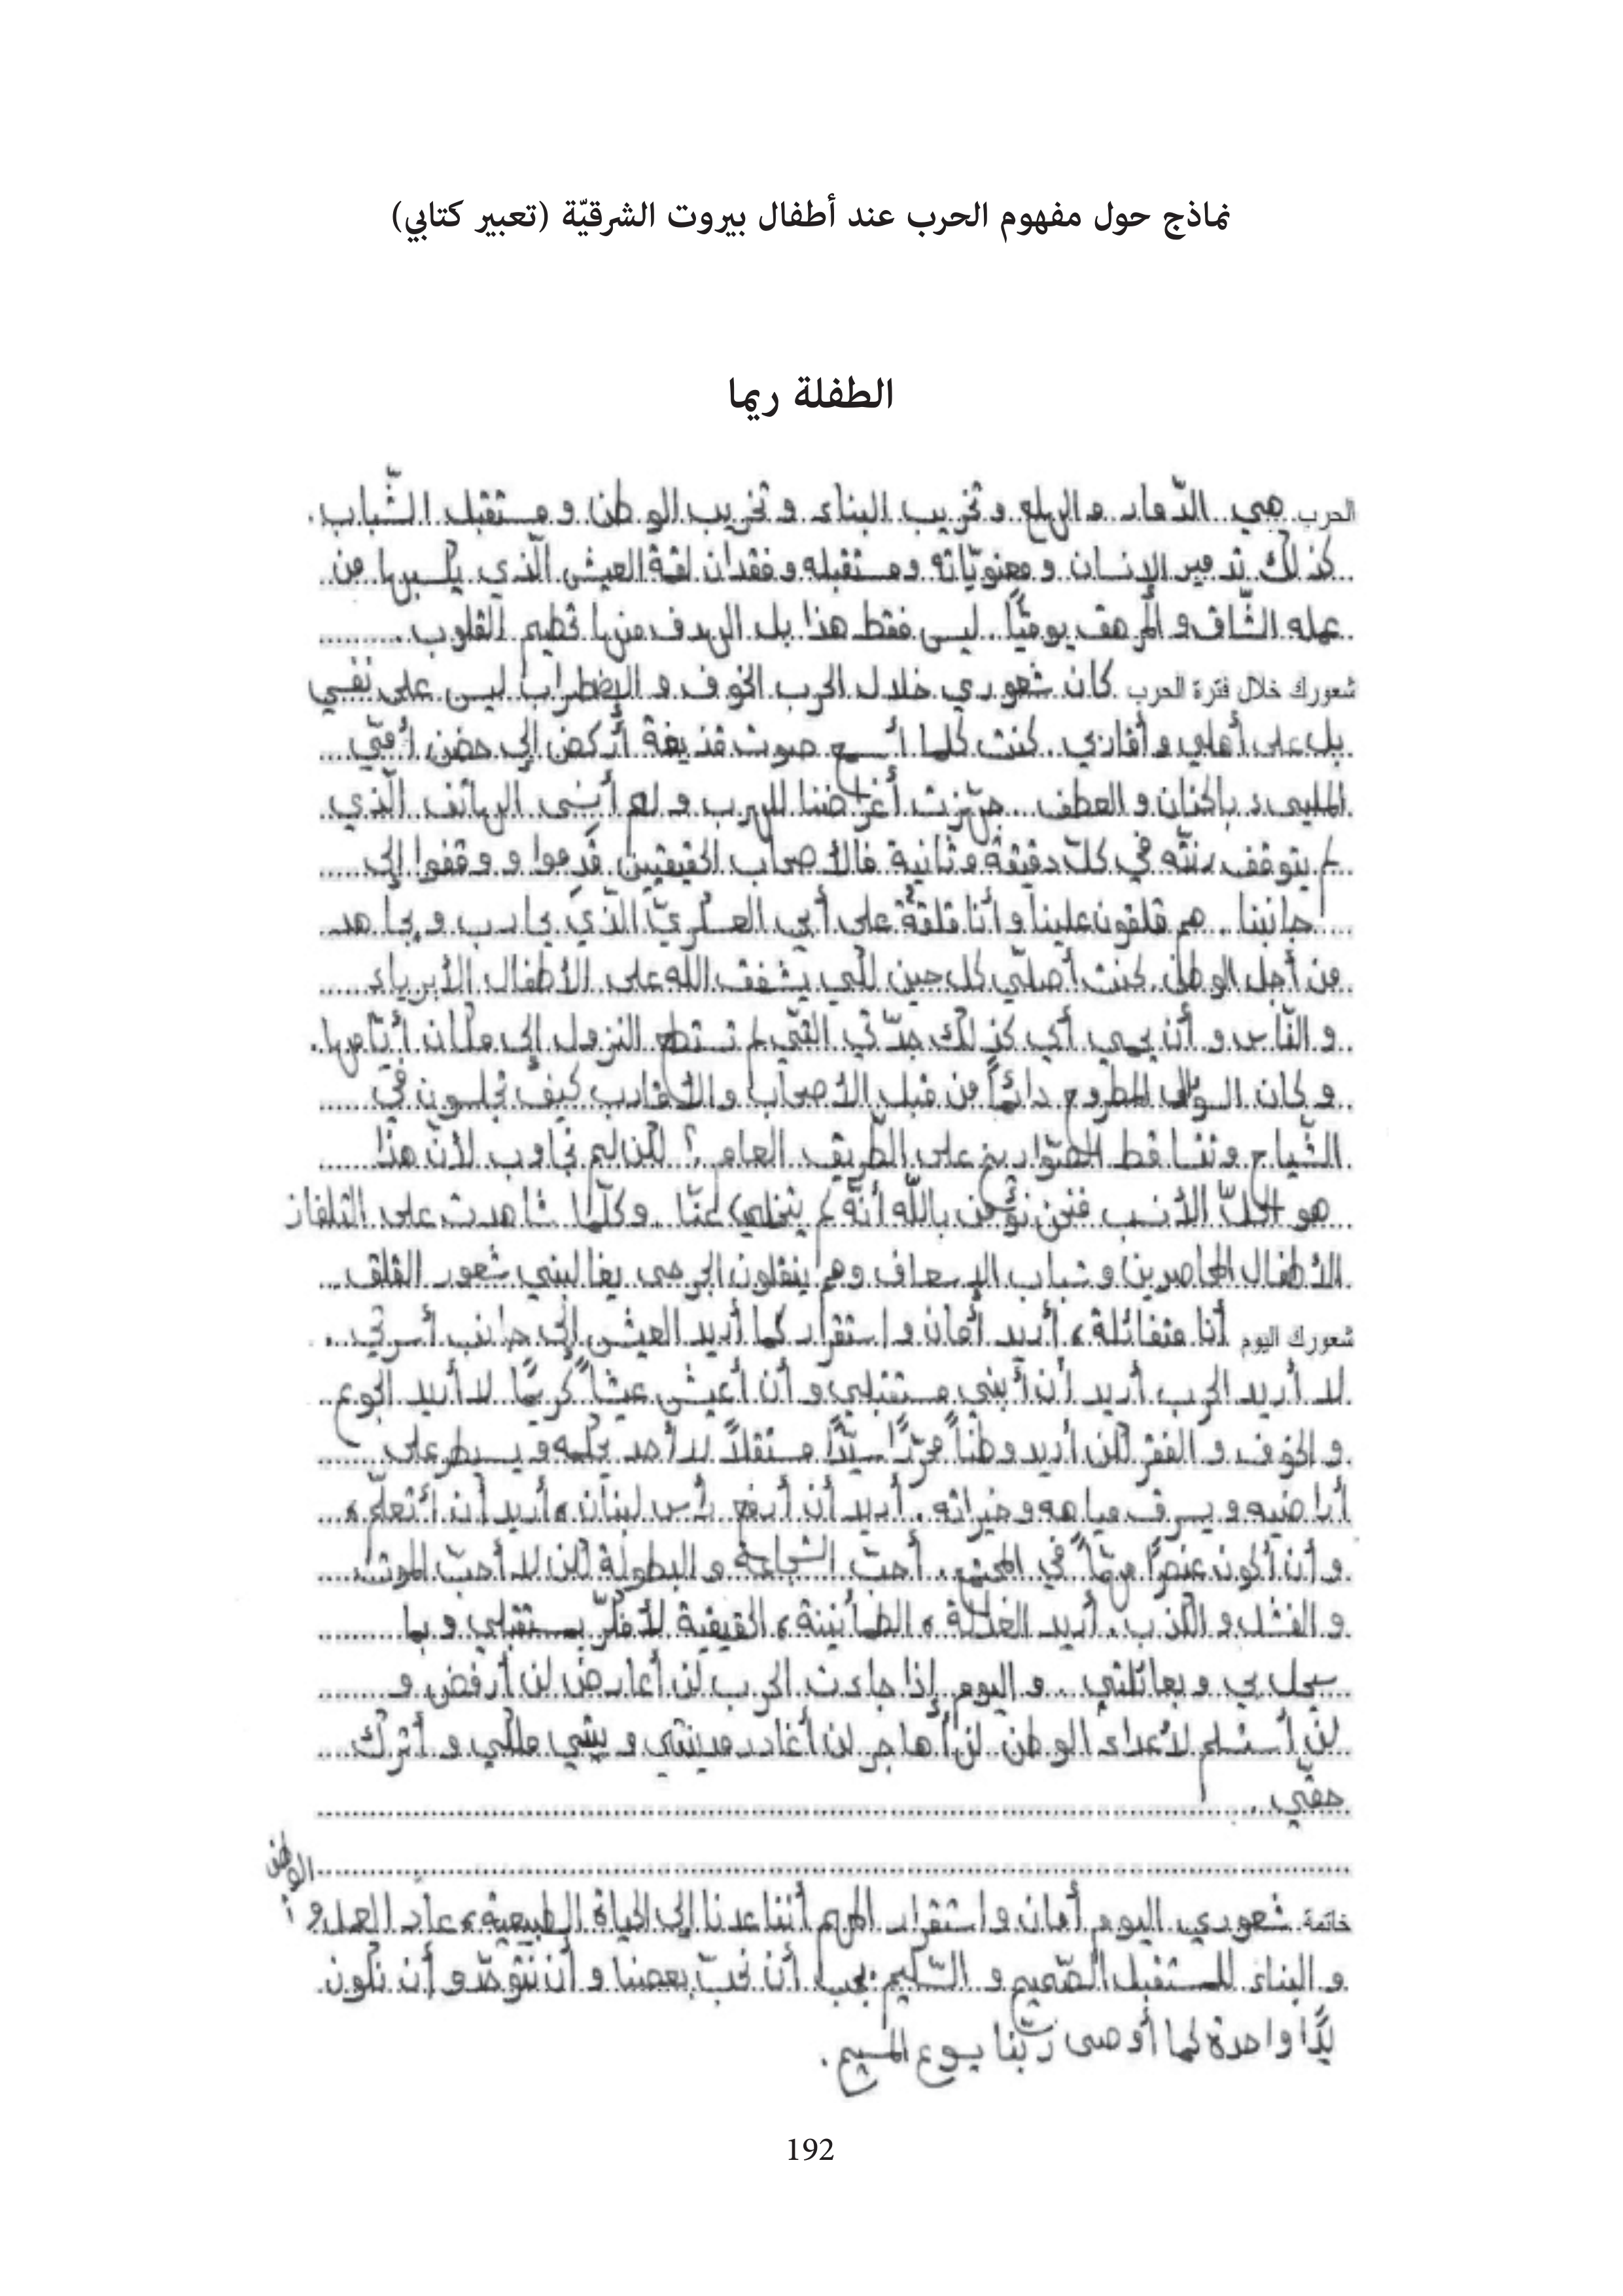 نماذج حول مفهوم الحرب عند أطفال بيروت الشرقيّة (تعبير كتابي)
الطفلة ريما
الحرب هي الدّمار والهلع وتخريب البناء وتخريب الوطن ومستقبل الشّباب.
كذلك تدمير الإنسان ومعنويّاته ومستقبله وفقدان لقمة العيش الّذي يكسبها من
عمله الشّاق والمرهق يوميًّا. ليس فقط هذا بل الهدف منها تحطيم القلوب.
شعورك خلال فترة الحرب كان شعوري خلال الحرب الخوف والإضطراب ليس على نفسي
بل على أهلي وأقاربي. كنت كلما أسمع صوت قذيفة أركض إلى حضن أمّي
المليىء بالحنان والعطف. جهّزت أغراضنا للهرب ولم أنسى الهاتف الّذي
لم يتوقف رنّه في كلّ دقيقة وثانية فالأصحاب الحقيقيين قدموا ووقفوا إلى
جانبنا. هم قلقون علينا وأنا قلقة على أبي العسكريّ الّذي يحارب ويجاهد
من أجل الوطن. كنت أصلّي كل حين لكي يشفق الله على الأطفال الأبرياء
والنّاس وأن يحمي أبي كذلك جدّتي التّي لم تستطع النزول إلى مكان أيّامها.
وكان السؤال المطروح دائماً من قبل الأصحاب والأقارب كيف تجلسون في
الشّياح وتتساقط الصّواريخ على الطّريق العام؟ لكن لم نجاوب لأنّ هذا
هو الحلّ الأنسب فنحن نؤمن باللّه أنّه لم يتخلى عنّا. وكلّما شاهدت على التلفاز
الأطفال المحاصرين وشباب الإسعاف وهم ينقلون الجرحى يغالبني شعور القلق
شعورك اليوم أنا متفائلة، أريد أمان وإستقرار كما أريد العيش إلى جانب أسرتي.
لا أريد الحرب أريد أن أبني مستقبلي وأن أعيش عيشاً كريمًا لا أريد الجوع
والخوف والفقر لكن أريد وطناً محرّرًا سيّدًا مستقلاً لا أحد يحكمه ويسيطر على
أراضيه ويسرق مياهه وخيراته. أريد أن أرفع رأس لبنان، أريد أن أتعلّم،
وأن أكون عنصرًا مهمّاً في المجتمع. أحبّ الشجاعة والبطولة لكن لا أحبّ الموت
والفشل والكذب. أريد العدالة، الطمأنينة، الحقيقية لأفكّر بمستقبلي وبما
سيحل بي وبعائلتي. واليوم إذا جاءت الحرب لن أعارض لن أرفض و
لن أستسلم لأعداء الوطن لن أهاجر لن أغادر مدينتي وبيتي ملكي وأترك
حقّي.
الوطن
خاتمة شعوري اليوم أمان واستقرار المهم أننا عدنا إلى الحياة الطبيعية، عاد العمل و
والبناء للمستقبل الصّحيح والسّليم يجب أن نحبّ بعضنا وأن نتوحّد وأن نكون
يدًا واحدة كما أوصى ربّنا يسوع المسيح.
192